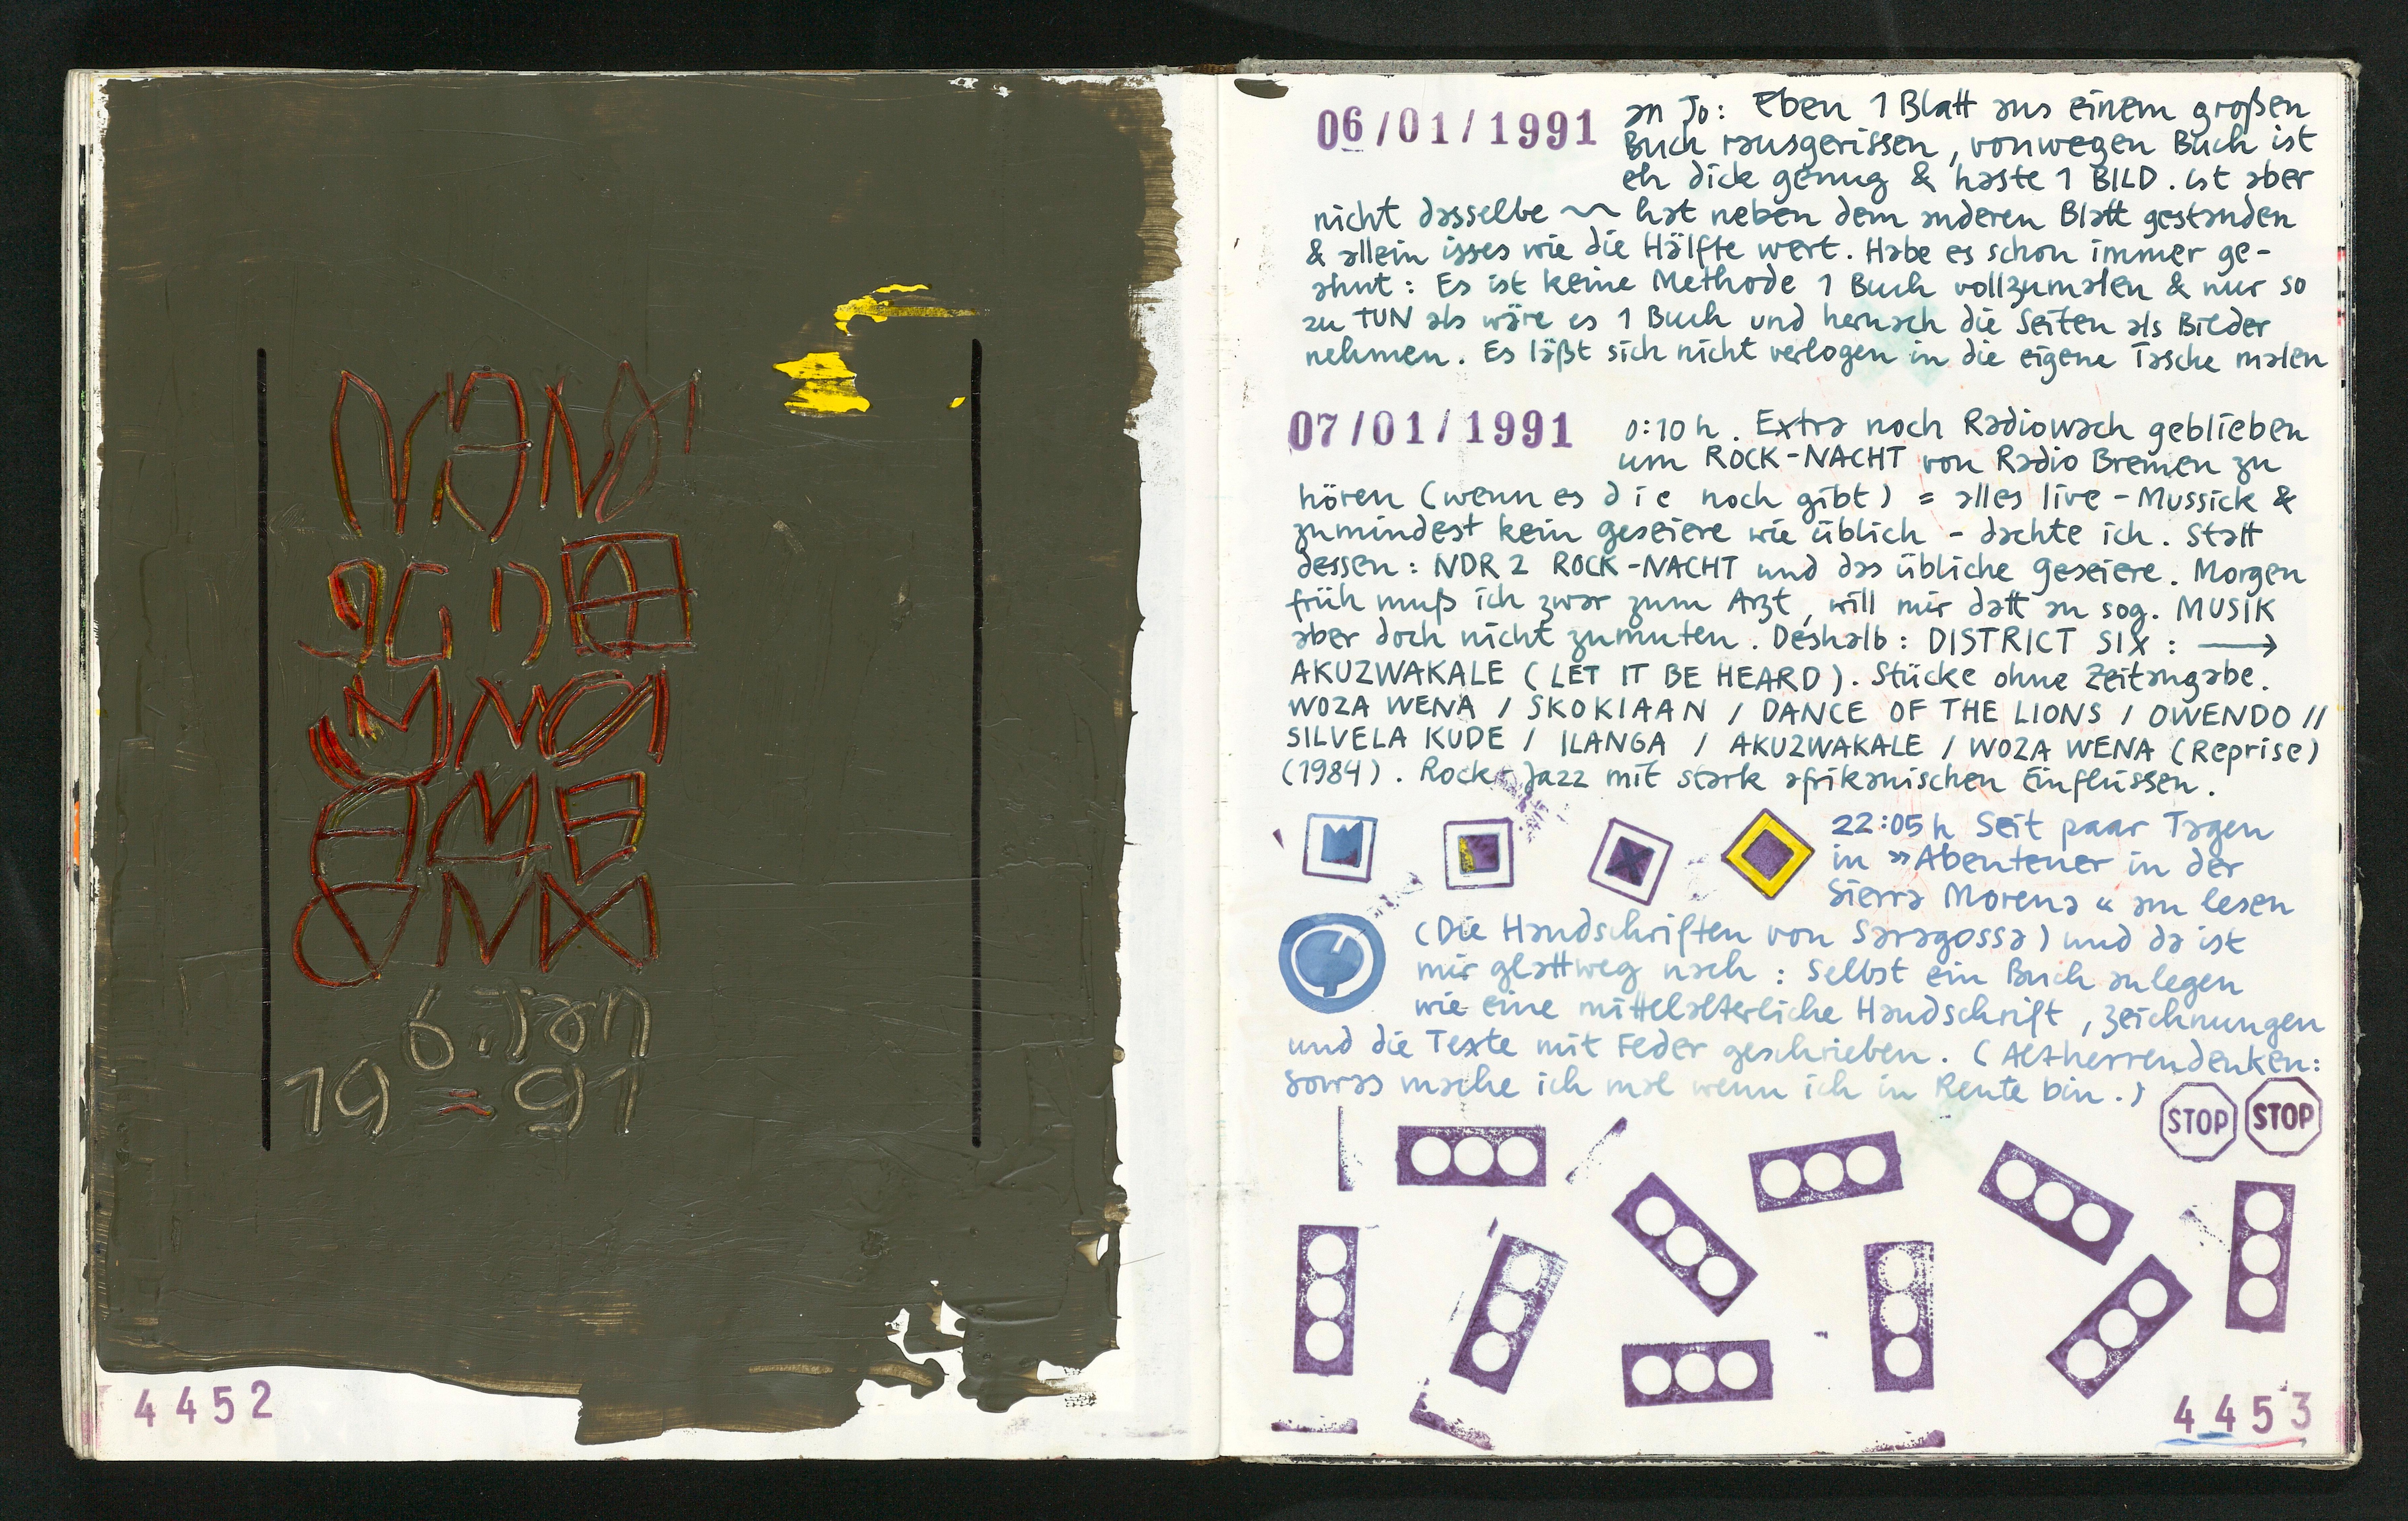 6. Jan
19 = 91
4452
06/01/1991 an Jo: Eben 1 Blatt aus einem großen
Buch rausgerissen, vonwegen Buch ist
eh dick genug & haste 1 BILD. ist aber
nicht dasselbe ~~ hat neben dem anderen Blatt gestanden
& allein isses wie die Hälfte wert. Habe es schon immer ge-
ahnt: Es ist keine Methode 1 Buch vollzumalen & nur so
zu TUN als wäre es 1 Buch und hernach die Seiten als Bilder
nehmen. Es läßt sich nicht verlogen in die eigene Tasche malen
07/01/1991 0:10 h. Extra noch Radiowach geblieben
um ROCK-NACHT von Radio Bremen zu
hören (wenn es d i e noch gibt) = alles live-Mussick &
zumindest kein geseiere wie üblich - dachte ich. Statt
dessen: NDR 2 ROCK-NACHT und das übliche Geseiere. Morgen
früh muß ich zwar zum Arzt, will mir datt an sog. MUSIK
aber doch nicht zumuten. Deshalb: DISTRICT SIX: →
AKUZWAKALE (LET IT BE HEARD). Stücke ohne Zeitangabe.
WOZA WENA / SKOKIAAN / DANCE OF THE LIONS / OWENDO //
SILVELA KUDE / ILANGA / AKUZWAKALE / WOZA WENA (Reprise)
(1984). Rock-Jazz mit stark afrikanischen Einflüssen.
22:05 h Seit paar Tagen
in »Abenteuer in der
Sierra Morena« am lesen
(Die Handschriften von Saragossa) und da ist
mir glattweg nach: Selbst ein Buch anlegen
wie eine mittelalterliche Handschrift, Zeichnungen
und die Texte mit Feder geschrieben. (Altherrendenken:
sowas mache ich mal wenn ich in Rente bin.)
STOP STOP
4453